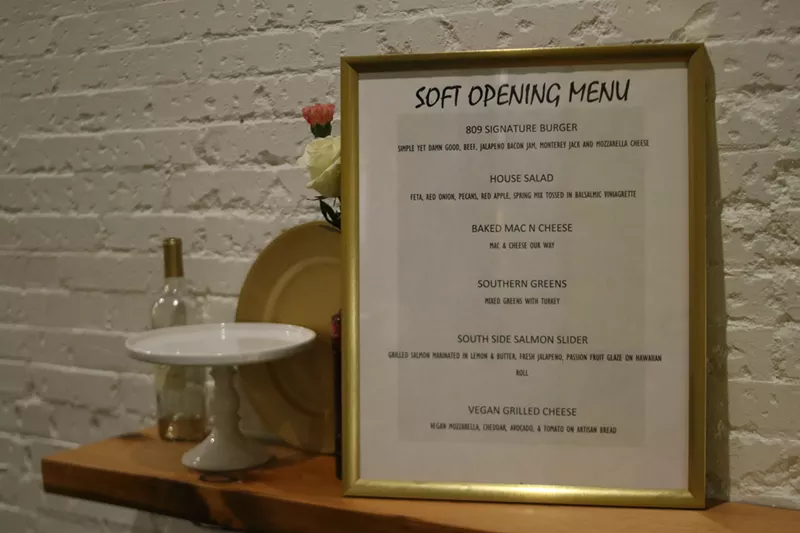 SOFT OPENING MENU
809 SIGNATURE BURGER
SIMPLE YET DAMN GOOD, BEEF, JALAPENO BACON JAM, MONTEREY JACK AND MOZZARELLA CHEESE
HOUSE SALAD
FETA, RED ONION, PECANS, RED APPLE, SPRING MIX TOSSED IN BALSALMIC VINIAGRETTE
BAKED MAC N CHEESE
MAC & CHEESE OUR WAY
SOUTHERN GREENS
MIXED GREENS WITH TURKEY
SOUTH SIDE SALMON SLIDER
GRILLED SALMON MARINATED IN LEMON & BUTTER, FRESH JALAPENO, PASSION FRUIT GLAZE ON HAWAIIAN
ROLL
VEGAN GRILLED CHEESE
VEGAN MOZZARELLA, CHEDDAR, AVOCADO, & TOMATO ON ARTISAN BREAD